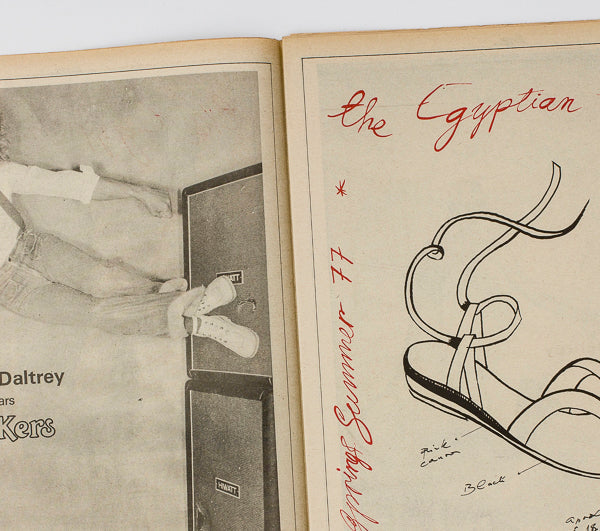 HIWATT
Daltrey
ars
Kers
HIWATT
the Egyptian
*
Spring Summer 77
Black